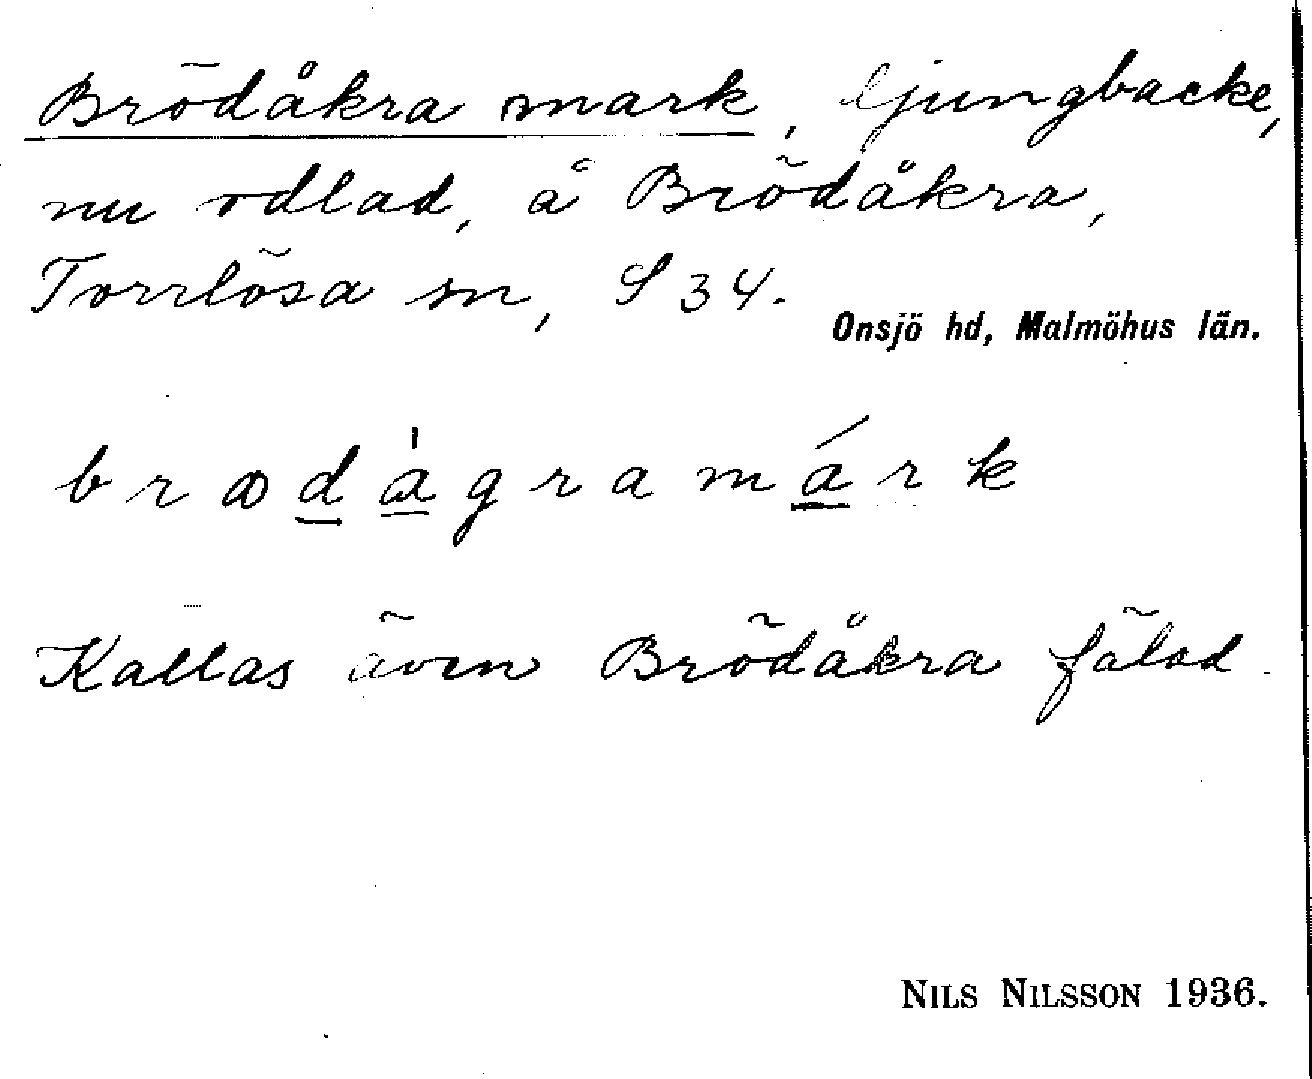 Brödåkra mark, ljungbacke,
nu odlad, å Brödåkra,
Torrlösa sn, S 34.
Onsjö hd, Malmöhus län.
brødàgramárk
Kallas även Brödåkra fälad.
NILS NILSSON 1936.